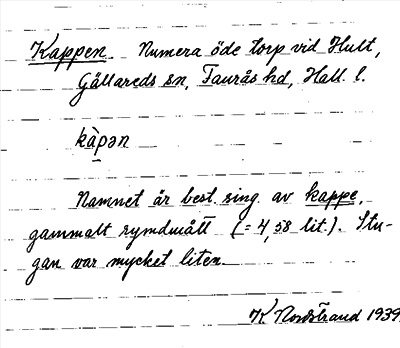 Kappen. Numera öde torp vid Hult,
Gällareds sn, Faurås hd, Hall. l.
kàpən
Namnet är best. sing. av kappe,
gammalt rymdmått (= 4,58 lit.). Stu-
gan var mycket liten.
K Nordstrand 1939.